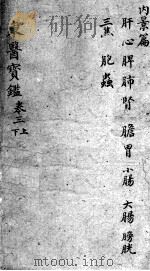 内景篇
肝心脾肺腎 膽胃 小腸 大腸 膀胱
三焦 胞 蟲
醫寶鑑 卷三 上下
mtoou.info